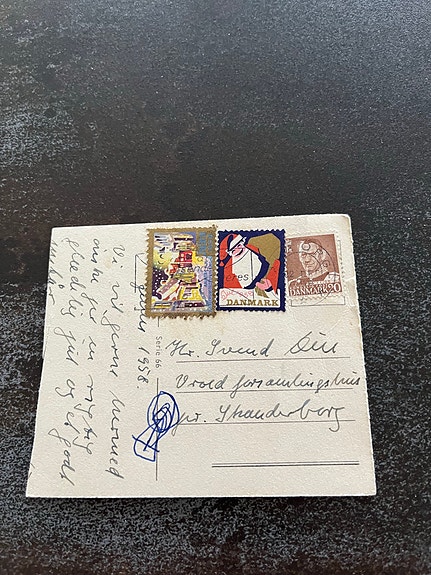 Vi vil gerne hermed
ønske jer en rigtig
glædelig jul og et godt
nytår
Serie 66
DANMARK
DANMARK 20
Hr. Svend
Vrold forsamlingshus
pr. Skanderborg